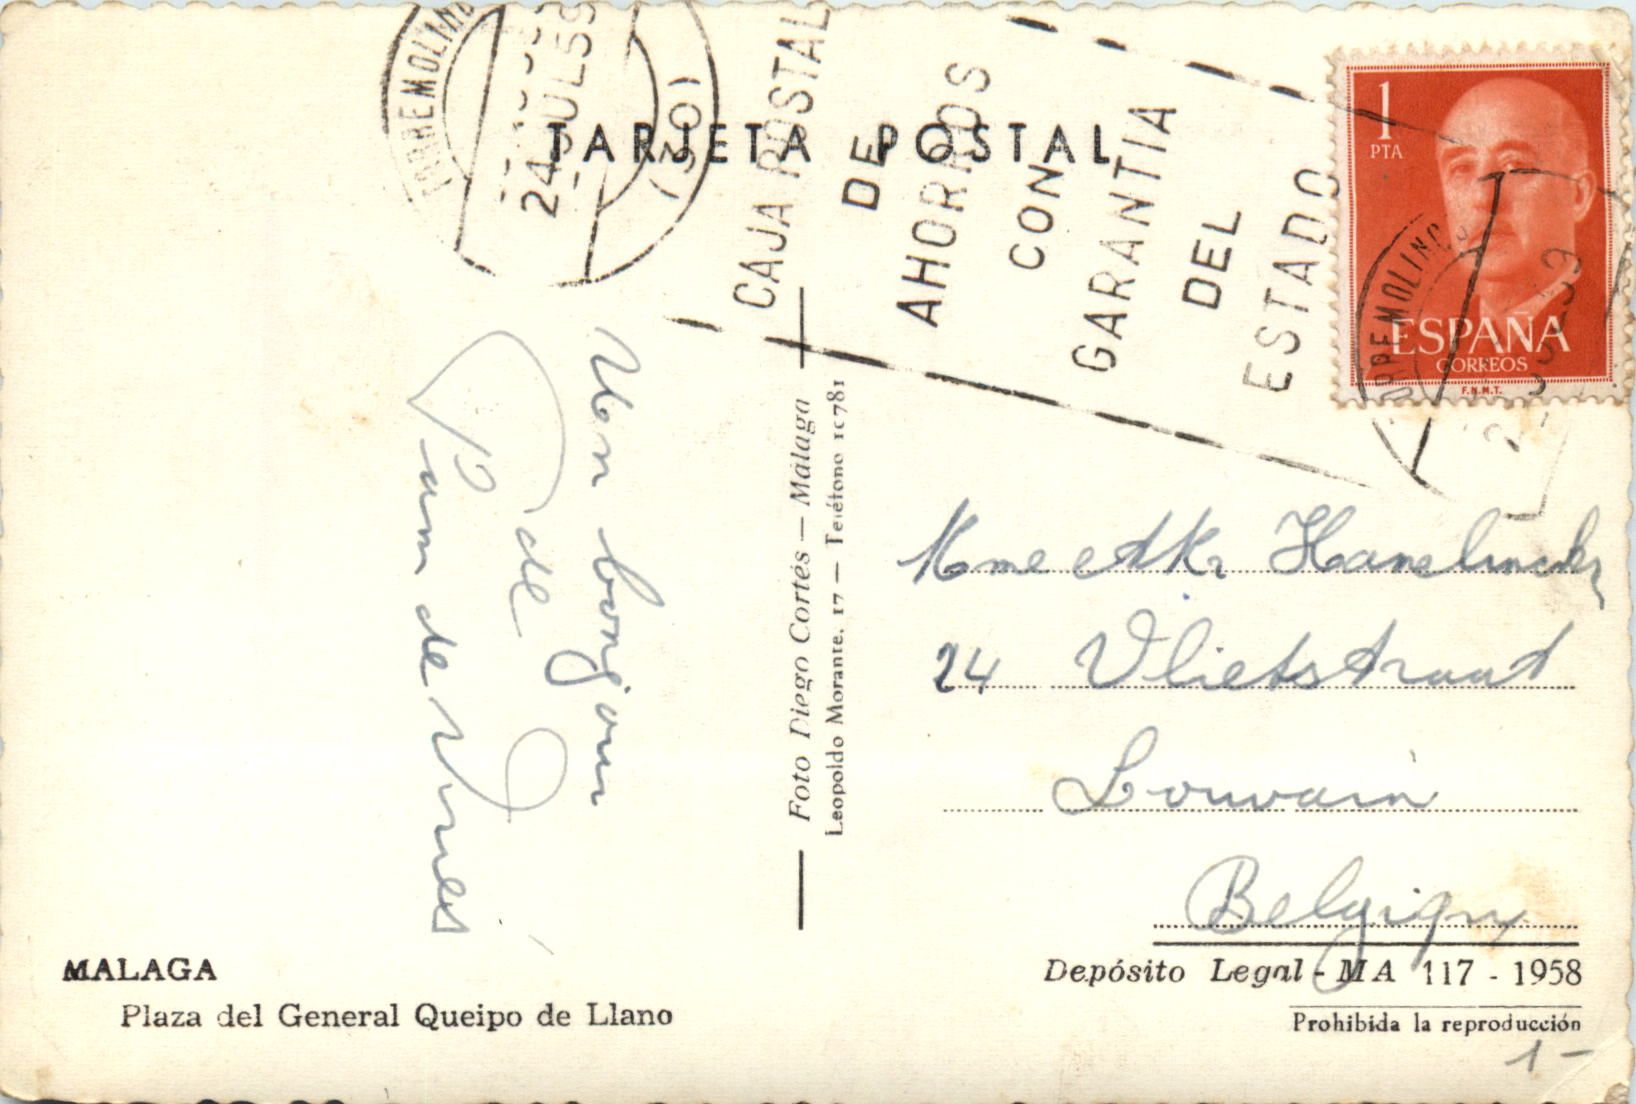 TARJETA POSTAL
TORREMOLINOS
24 JUL 59
(301)
CAJA POSTAL
DE
AHORROS
CON
GARANTIA
DEL
ESTADO
1
PTA
ESPAÑA
CORREOS
F.N.M.T.
TORREMOLINOS
Un bonjour
de
Pam de Vries
Foto Diego Cortés — Málaga
Leopoldo Morante, 17 — Teléfono 10781
Mme
24 Vlietstraat
Louvain
Belgique
MALAGA
Plaza del General Queipo de Llano
Depósito Legal - MA 117 - 1958
Prohibida la reproducción
1-